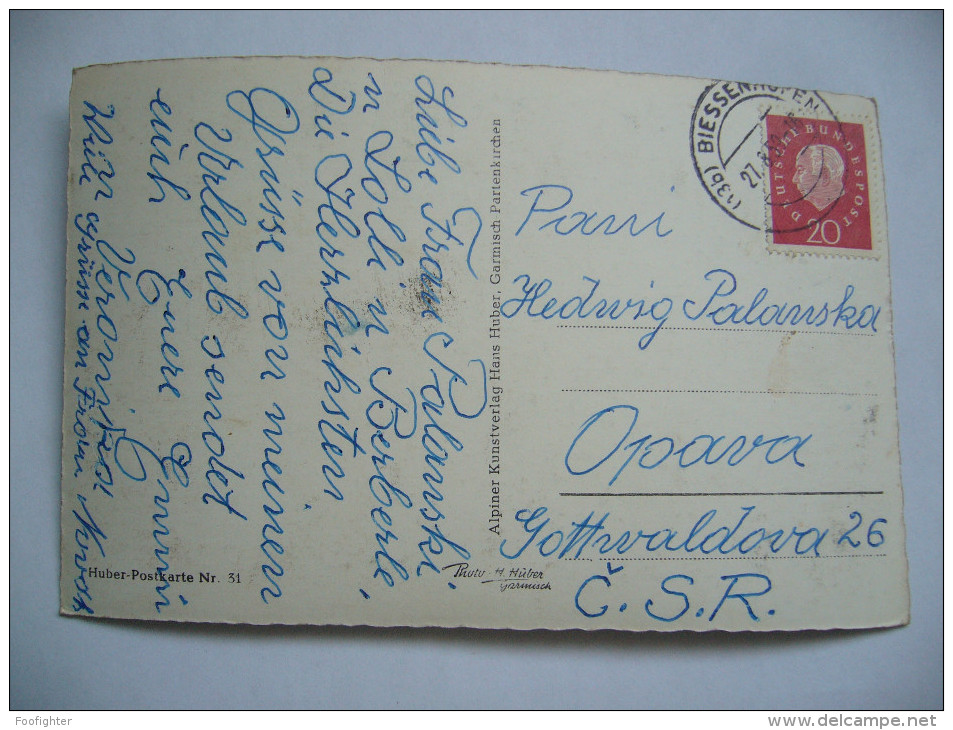 Liebe Frau Palanski.
u Lolli u Berberle,
Die Herzlichsten
Grüsse von meinen
Urlaub sendet
euch Euere Emmi
Viele grüsse an Frau
Alpiner Kunstverlag Hans Huber, Garmisch Partenkirchen
Huber-Postkarte Nr. 31
Photo H. Huber
Garmisch
(13b) BIESSENHOFEN
27.8.59
DEUTSCHE BUNDESPOST
20
Pani
Hedwig Palanska
Opava
Gottwaldova 26
Č.S.R.
Foofighter
www.delcampe.net